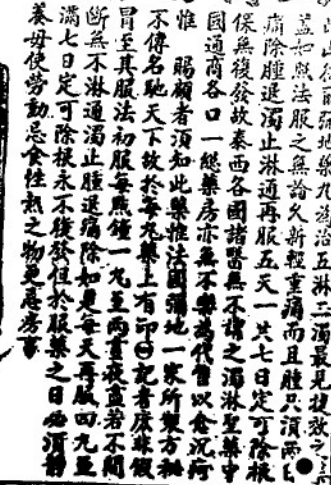 彌地藥丸發治五淋三濁最見捷效之
蓋如照法服之無論久新輕重痛而且腫只須兩
痛除腫退濁止淋通再服五天一共七日定可除根
保無復發故泰西各國諸醫無不譁之濁淋聖藥中
國通商各口一總藥房亦無不樂為代售以愈沉疴
惟 賜顧者須知此藥惟法國彌地一家所製方秘
不傳名馳天下故於每丸藥上有印㊀記者庶非假
冒至其服法初服每點鐘一丸至兩晝夜盡若不間
斷無不淋通濁止腫退痛除如更每天再服四丸至
滿七日定可除根永不復發但於服藥之日必須靜
養毋使勞動忌食性熱之物更忌房事